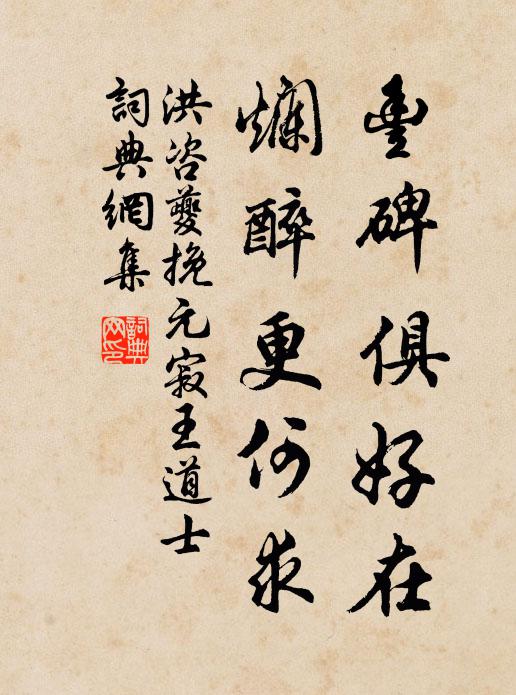 豊碑俱好在
爛醉更何求
洪咨夔挽元寂王道士
詞典網集
詞典網印